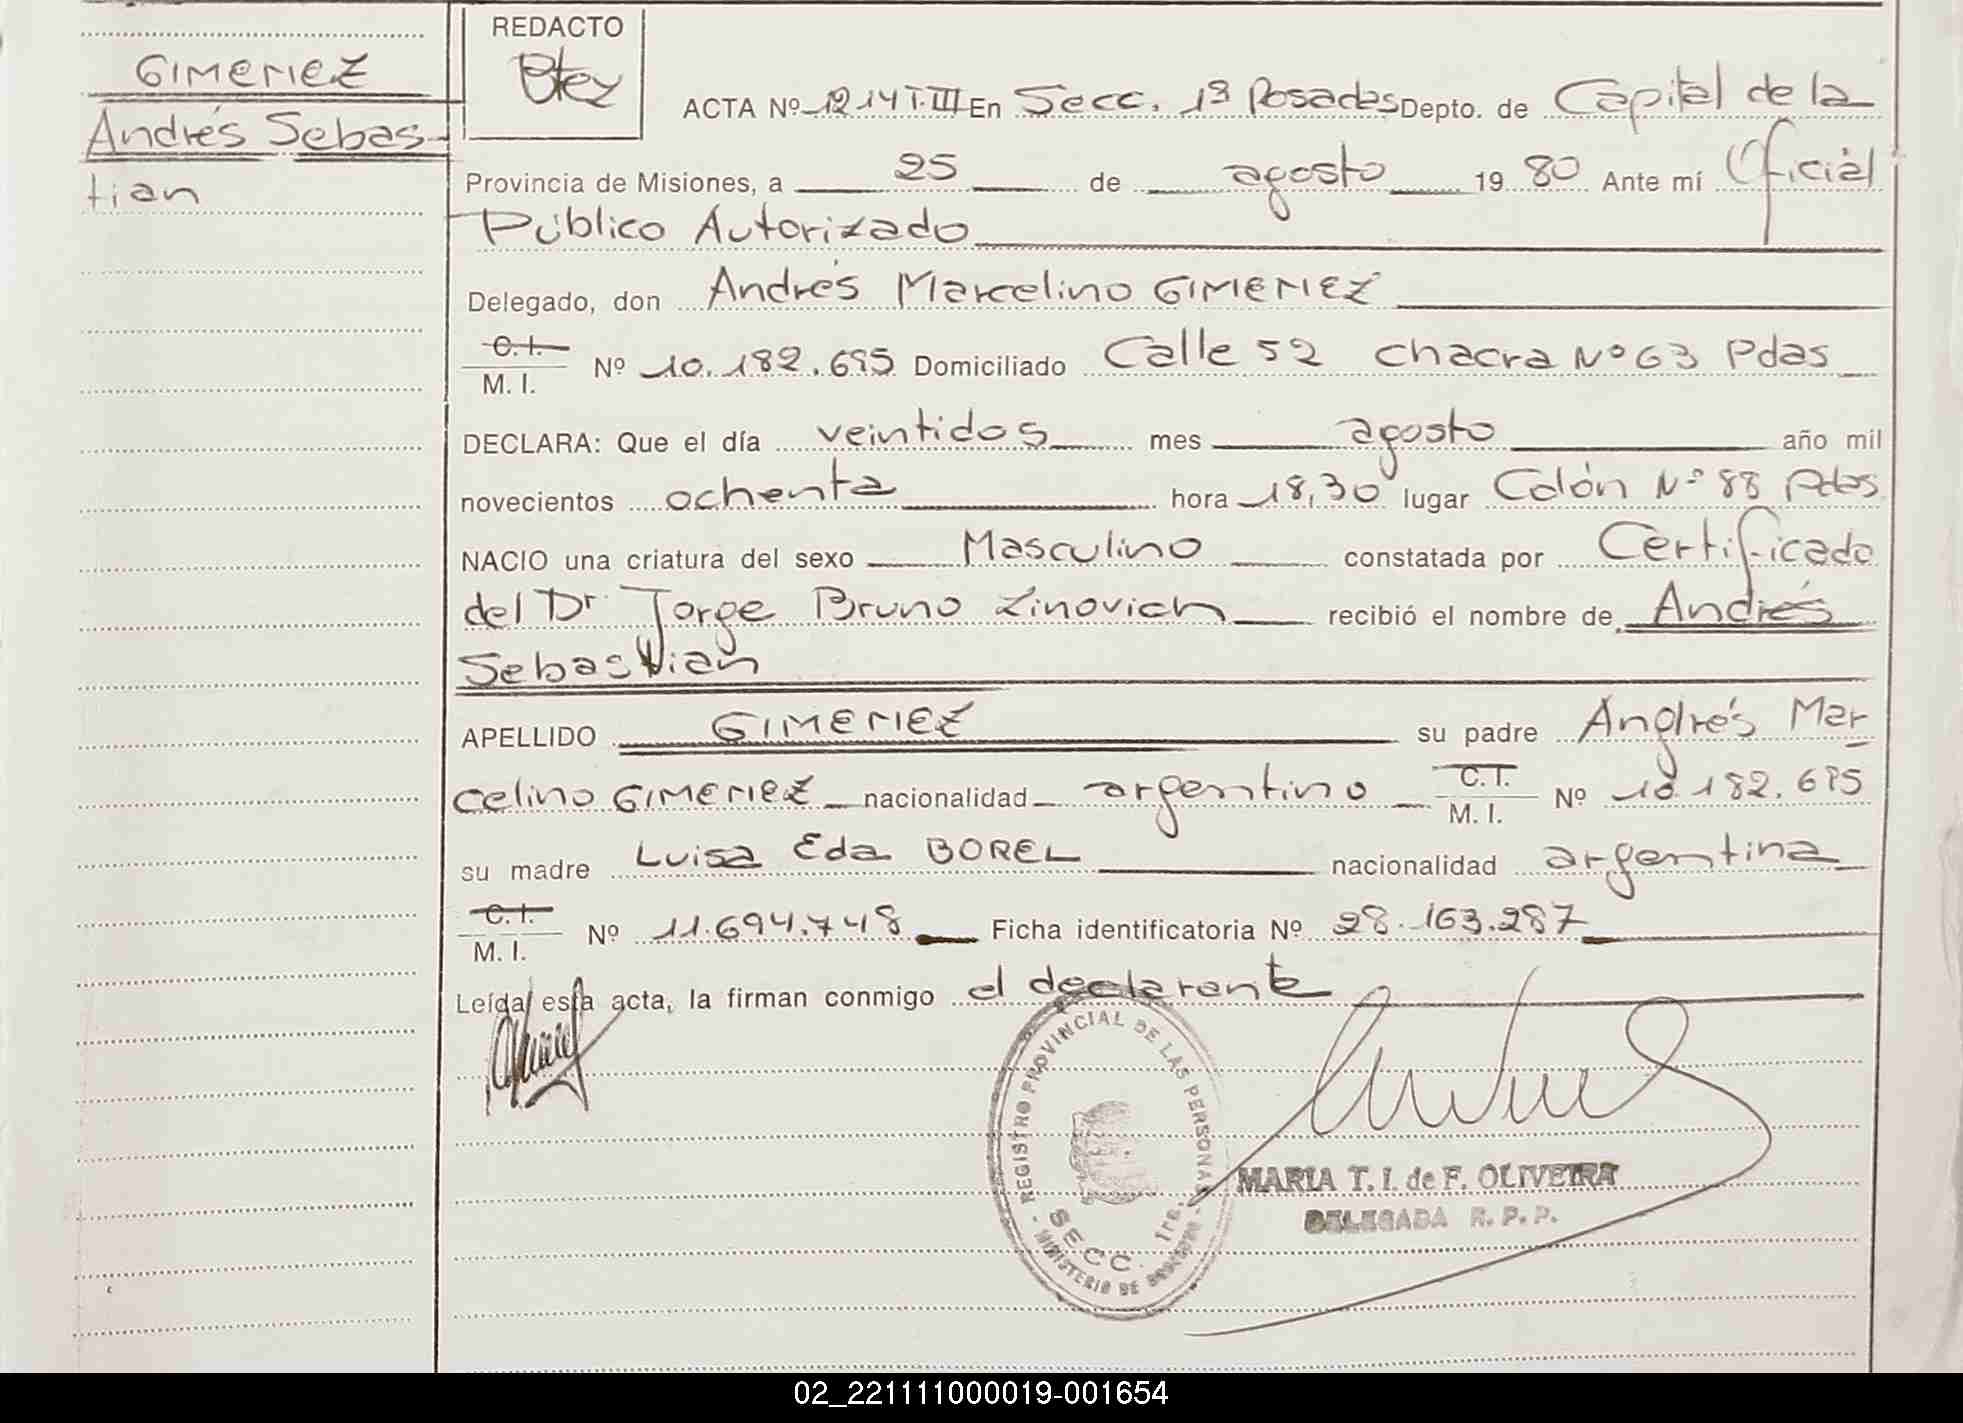 GIMENEZ
Andrés Sebas-
tian
REDACTO
ACTA Nº 1214 T. III En Secc. 1ª Posadas Depto. de Capital de la
Provincia de Misiones, a 25 de agosto 19 80 Ante mí Oficial
Público Autorizado
Delegado, don Andrés Marcelino GIMENEZ
C.I.
M. I. Nº 10.182.695 Domiciliado Calle 52 chacra Nº 63 Pdas
DECLARA: Que el día veintidos mes agosto año mil
novecientos ochenta hora 18,30 lugar Colón Nº 88 Pdas
NACIO una criatura del sexo Masculino constatada por Certificado
del Dr. Jorge Bruno Zinovich recibió el nombre de Andrés
Sebastian
APELLIDO GIMENEZ su padre Andrés Mar-
celino GIMENEZ nacionalidad argentino C.I.
M. I. Nº 10.182.695
su madre Luisa Eda BOREL nacionalidad argentina
C.I.
M. I. Nº 11.694.748 Ficha identificatoria Nº 28.163.287
Leída esta acta, la firman conmigo el declarante
REGISTRO PROVINCIAL DE LAS PERSONAS
SECC. 1ra.
MINISTERIO DE GOBIERNO
MARIA T. I. de F. OLIVEIRA
DELEGADA R. P. P.
02_221111000019-001654